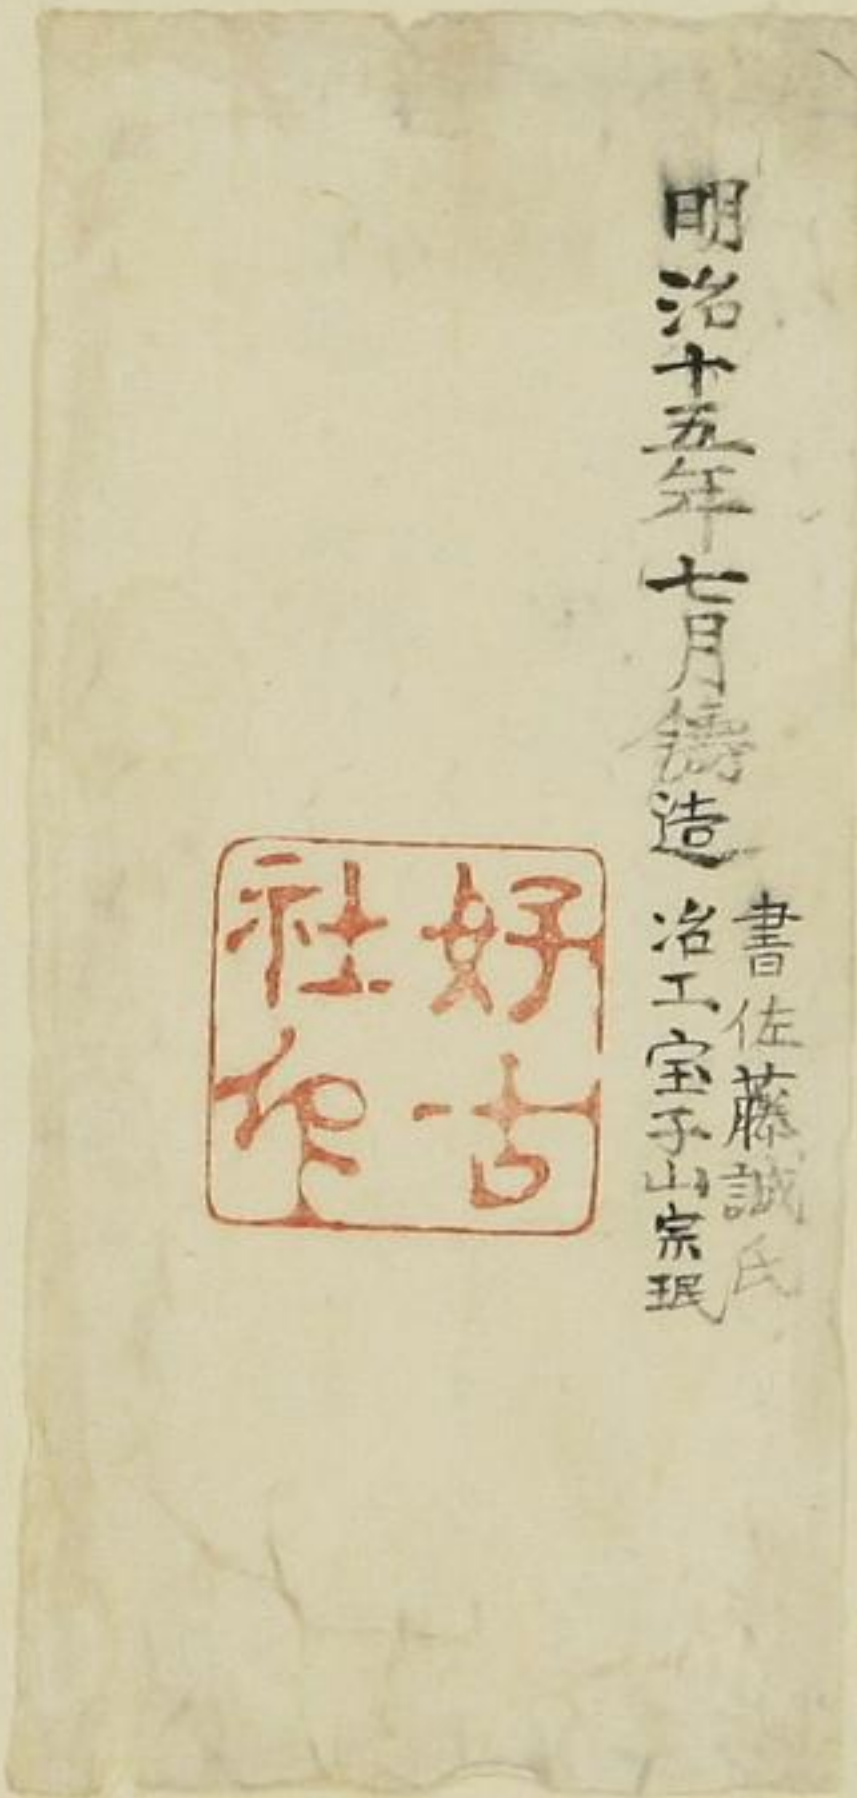 明治十五年七月鋳造
書佐藤誠氏
冶工宝子山宗珉
好古
社印